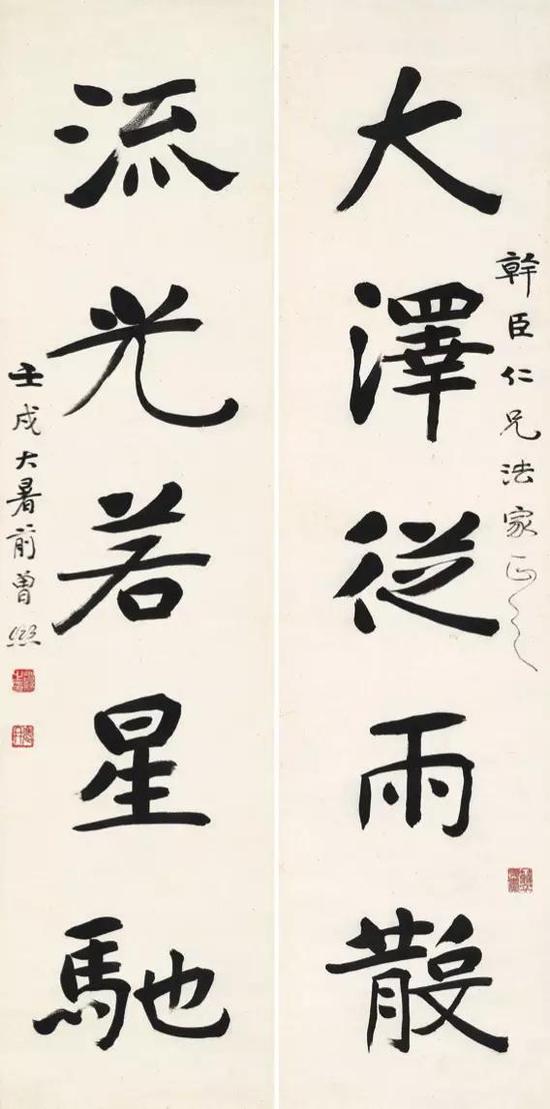 大澤從雨散
幹臣仁兄法家正之
流光若星馳
壬戌大暑前曾熙